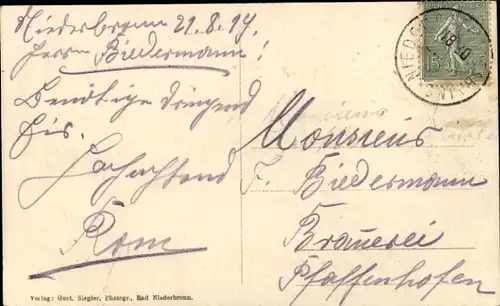 Niederbronn 21.8.19.
Herrn Biedermann!
Benötige dringend
Eis.
Hochachtend
Rom
Monsieur
F. Biedermann
Brauerei
Pfaffenhofen
15c
Verlag: Gust. Siegler, Photogr., Bad Niederbronn.